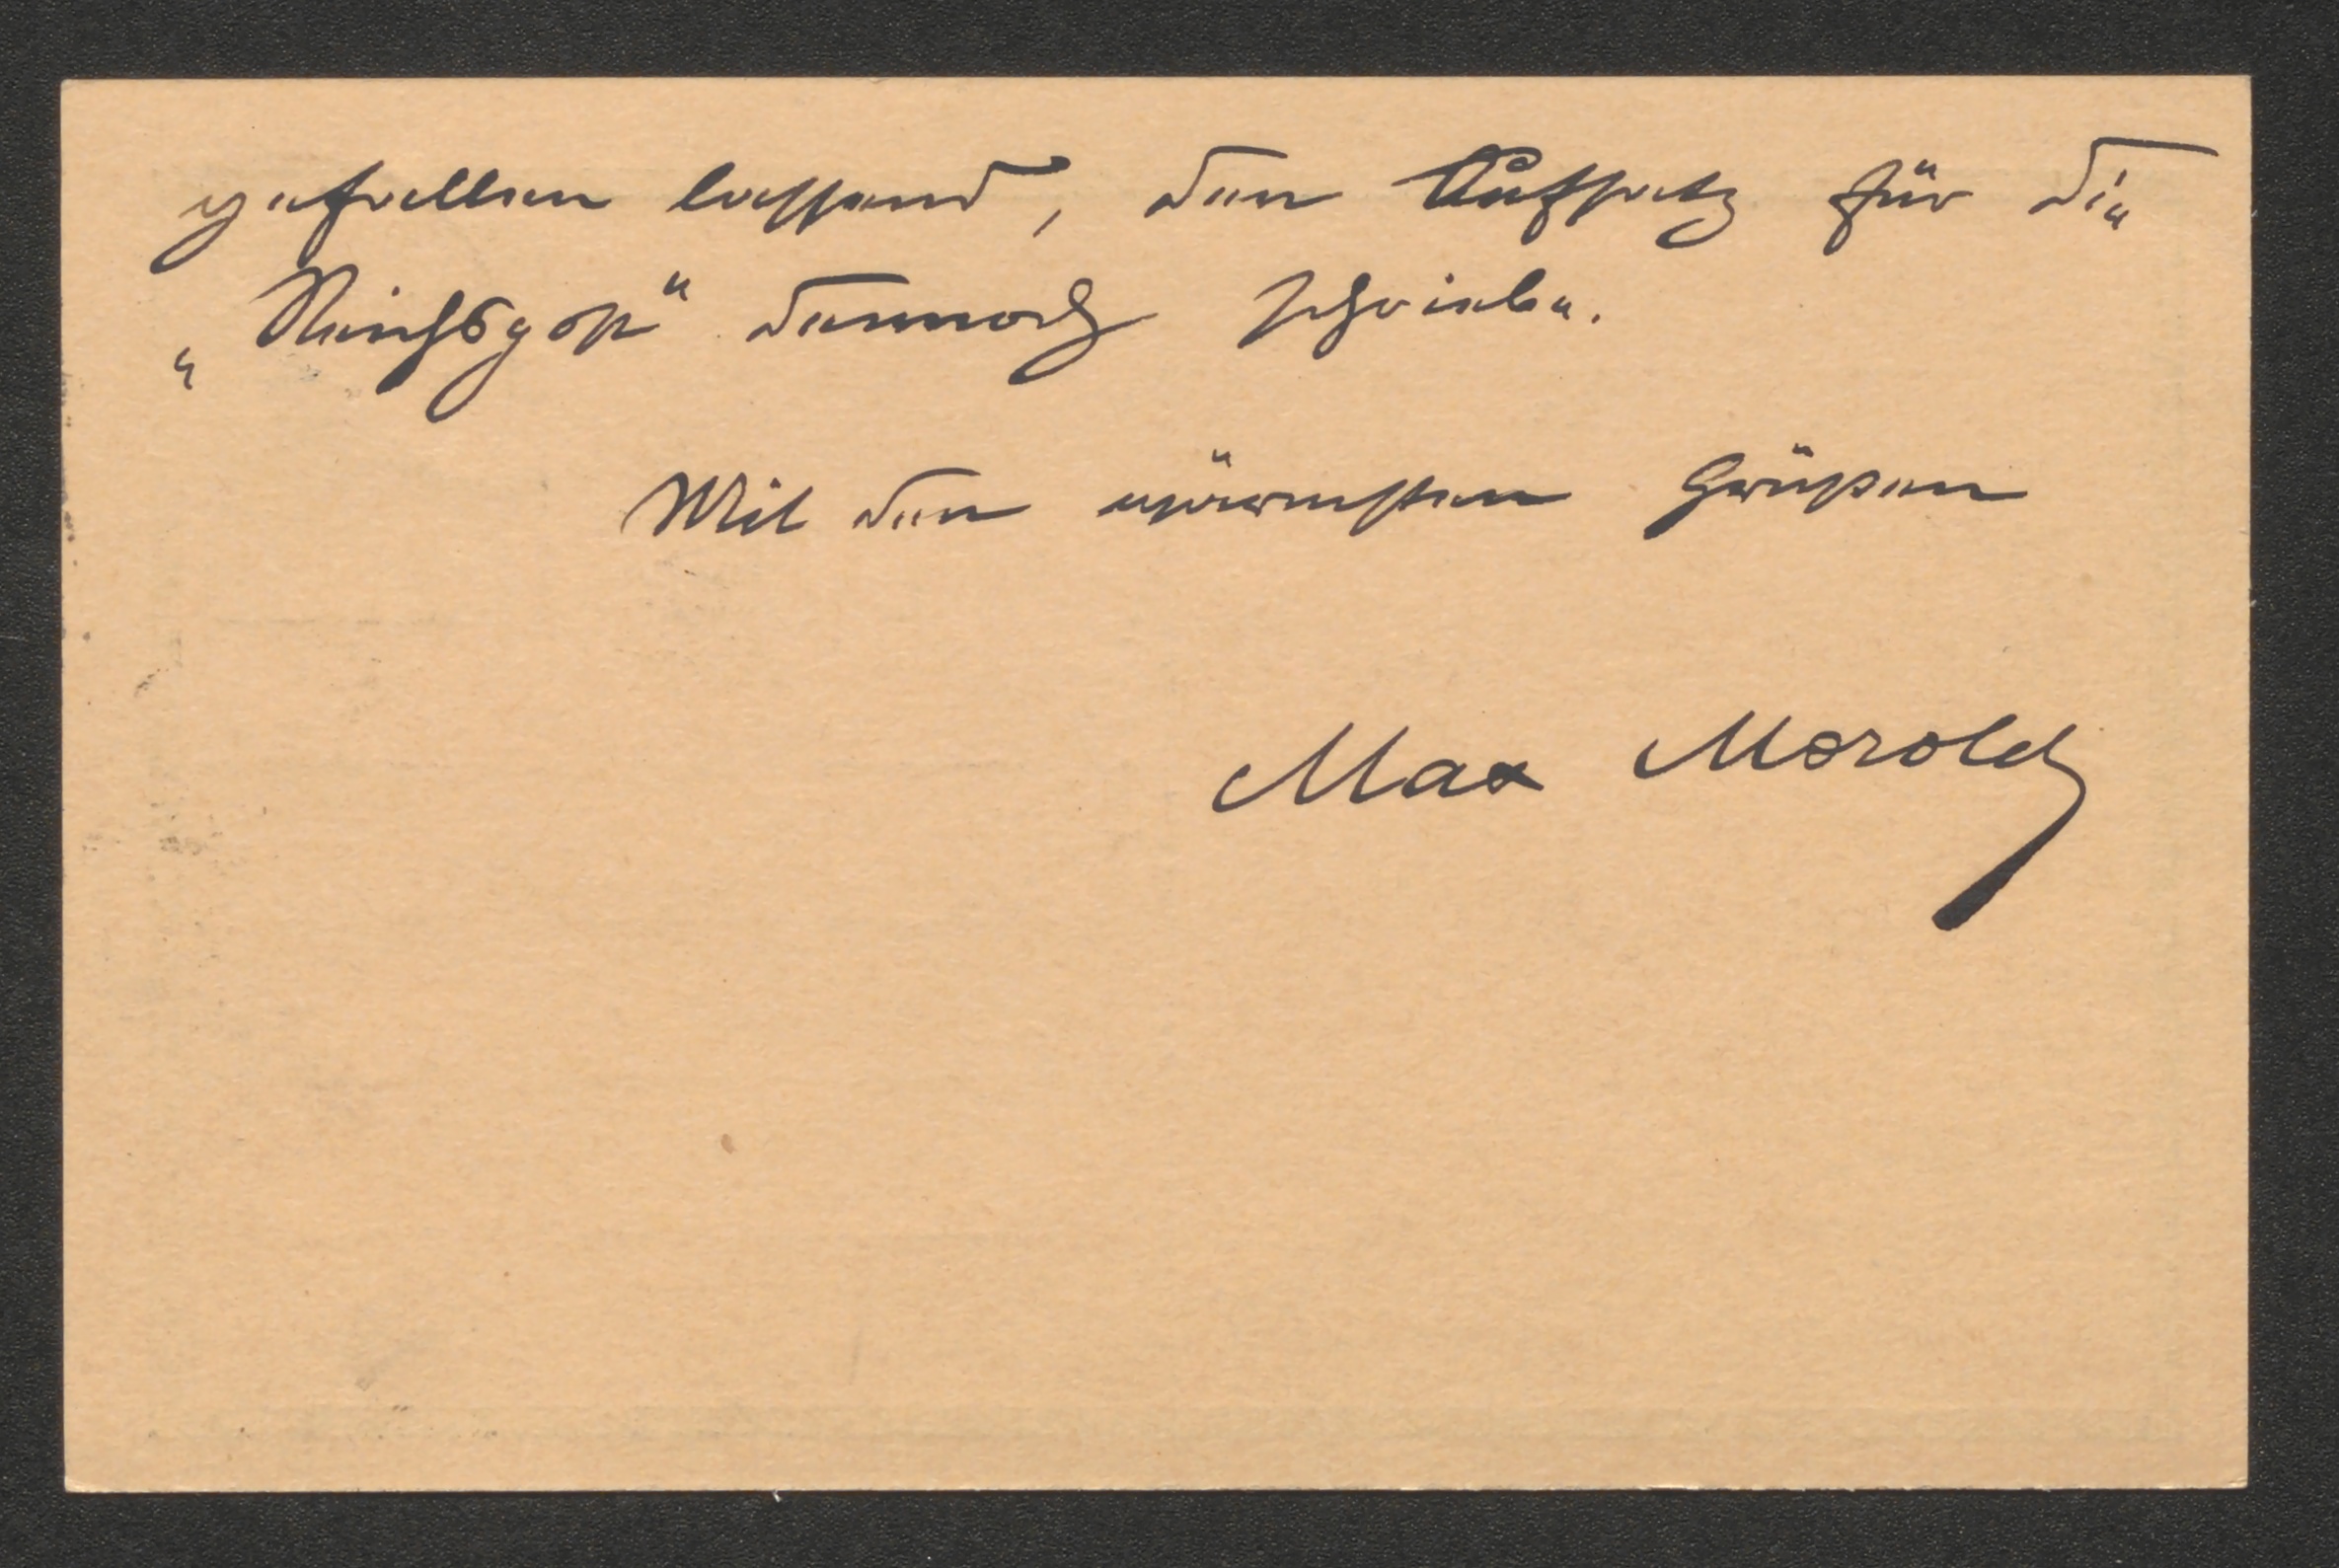 gefallen lassend, den Aufsatz für die
„Reichspost“ dennoch schriebe.
Mit den wärmsten Grüßen
Max Morold